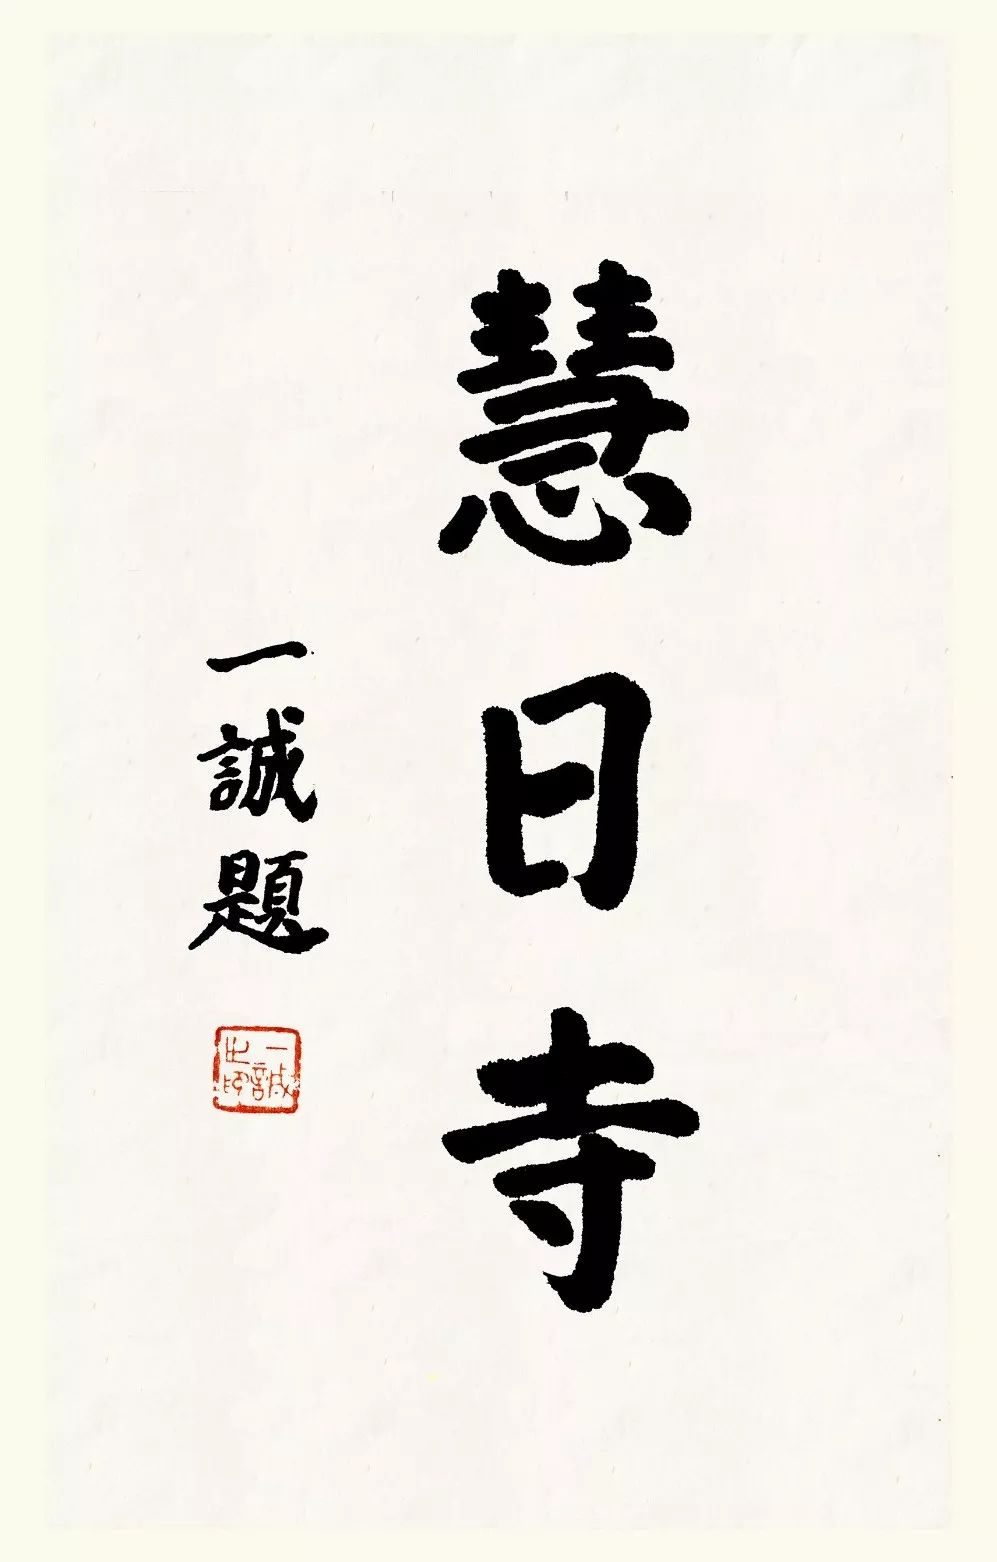 慧日寺
一誠題
一誠之印